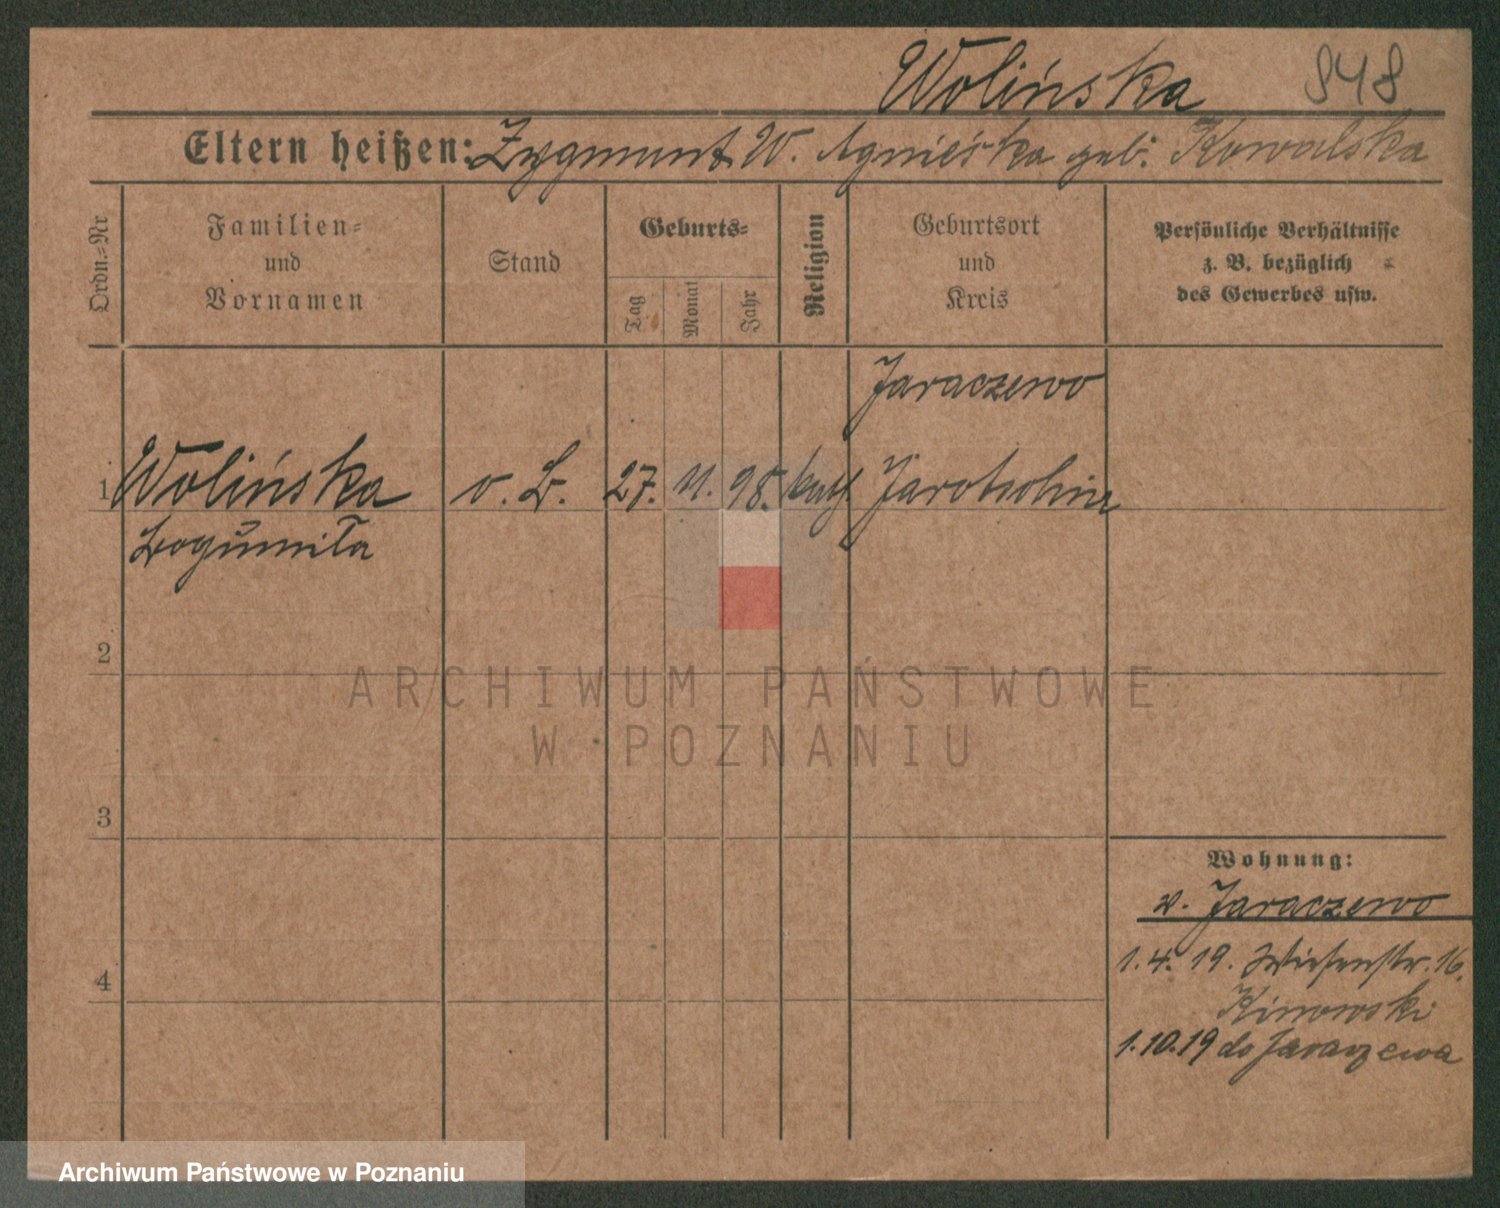 Wolińska 848
Eltern heißen: Zygmunt W. Agnieśka geb. Kowalska
Ordn.=Nr
Familien=
und
Vornamen
Stand
Geburts=
Tag
Monat
Jahr
Religion
Geburtsort
und
Kreis
Persönliche Verhältnisse
z. B. bezüglich
des Gewerbes usw.
Jaraczewo
1 Wolińska o. B. 27. 11. 98. kath Jarotschin
Bogumiła
2
ARCHIWUM PAŃSTWOWE
W POZNANIU
3
Wohnung:
v. Jaraczewo
4
1.4.19. Wiesenstr. 16.
Kinowski
1.10.19 do Jaraczewa
Archiwum Państwowe w Poznaniu